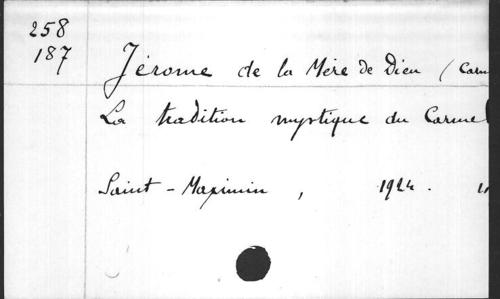 258
187
Jérome de la Mère de Dieu (Carm
La tradition mystique du Carmel
Saint-Maximin, 1924.